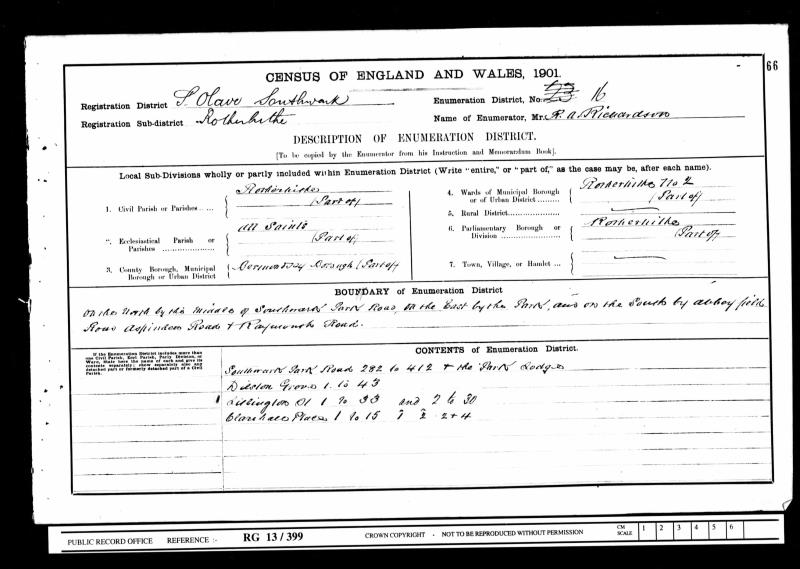 66
CENSUS OF ENGLAND AND WALES, 1901.
Registration District S. Olave Southwark
Enumeration District, No. 23 16
Registration Sub-district Rotherhithe
Name of Enumerator, Mr. R. A. Richardson
DESCRIPTION OF ENUMERATION DISTRICT.
[To be copied by the Enumerator from his Instruction and Memorandum Book].
Local Sub-Divisions wholly or partly included within Enumeration District (Write "entire," or "part of," as the case may be, after each name).
1. Civil Parish or Parishes .....
Rotherhithe
(Part of)
2. Ecclesiastical Parish or
Parishes ..................
All Saints
(Part of)
3. County Borough, Municipal
Borough or Urban District
Bermondsey Borough (Part of)
4. Wards of Municipal Borough
or of Urban District .........
Rotherhithe No 2
(Part of)
5. Rural District ..................
6. Parliamentary Borough or
Division ..................
Rotherhithe
(Part of)
7. Town, Village, or Hamlet ...
BOUNDARY of Enumeration District
On the North by the Middle of Southwark Park Road, on the East by the Park, and on the South by Abbeyfield
Road Aspinden Road & Raymouth Road.
If the Enumeration District includes more
than one Civil Parish, Eccl. Parish, Parly. Division, or
Ward, State here the name of each and give its
contents separately; show separately also any
detached part or formerly detached part of a Civil
Parish.
CONTENTS of Enumeration District.
Southwark Park Road 282 to 412 & the Park Lodge
Grove 1 to 43
St 1 to 33 and 2 to 30
Place 1 to 15 2 & 4
PUBLIC RECORD OFFICE REFERENCE :- RG 13 / 399 CROWN COPYRIGHT - NOT TO BE REPRODUCED WITHOUT PERMISSION
CM
SCALE 1 2 3 4 5 6